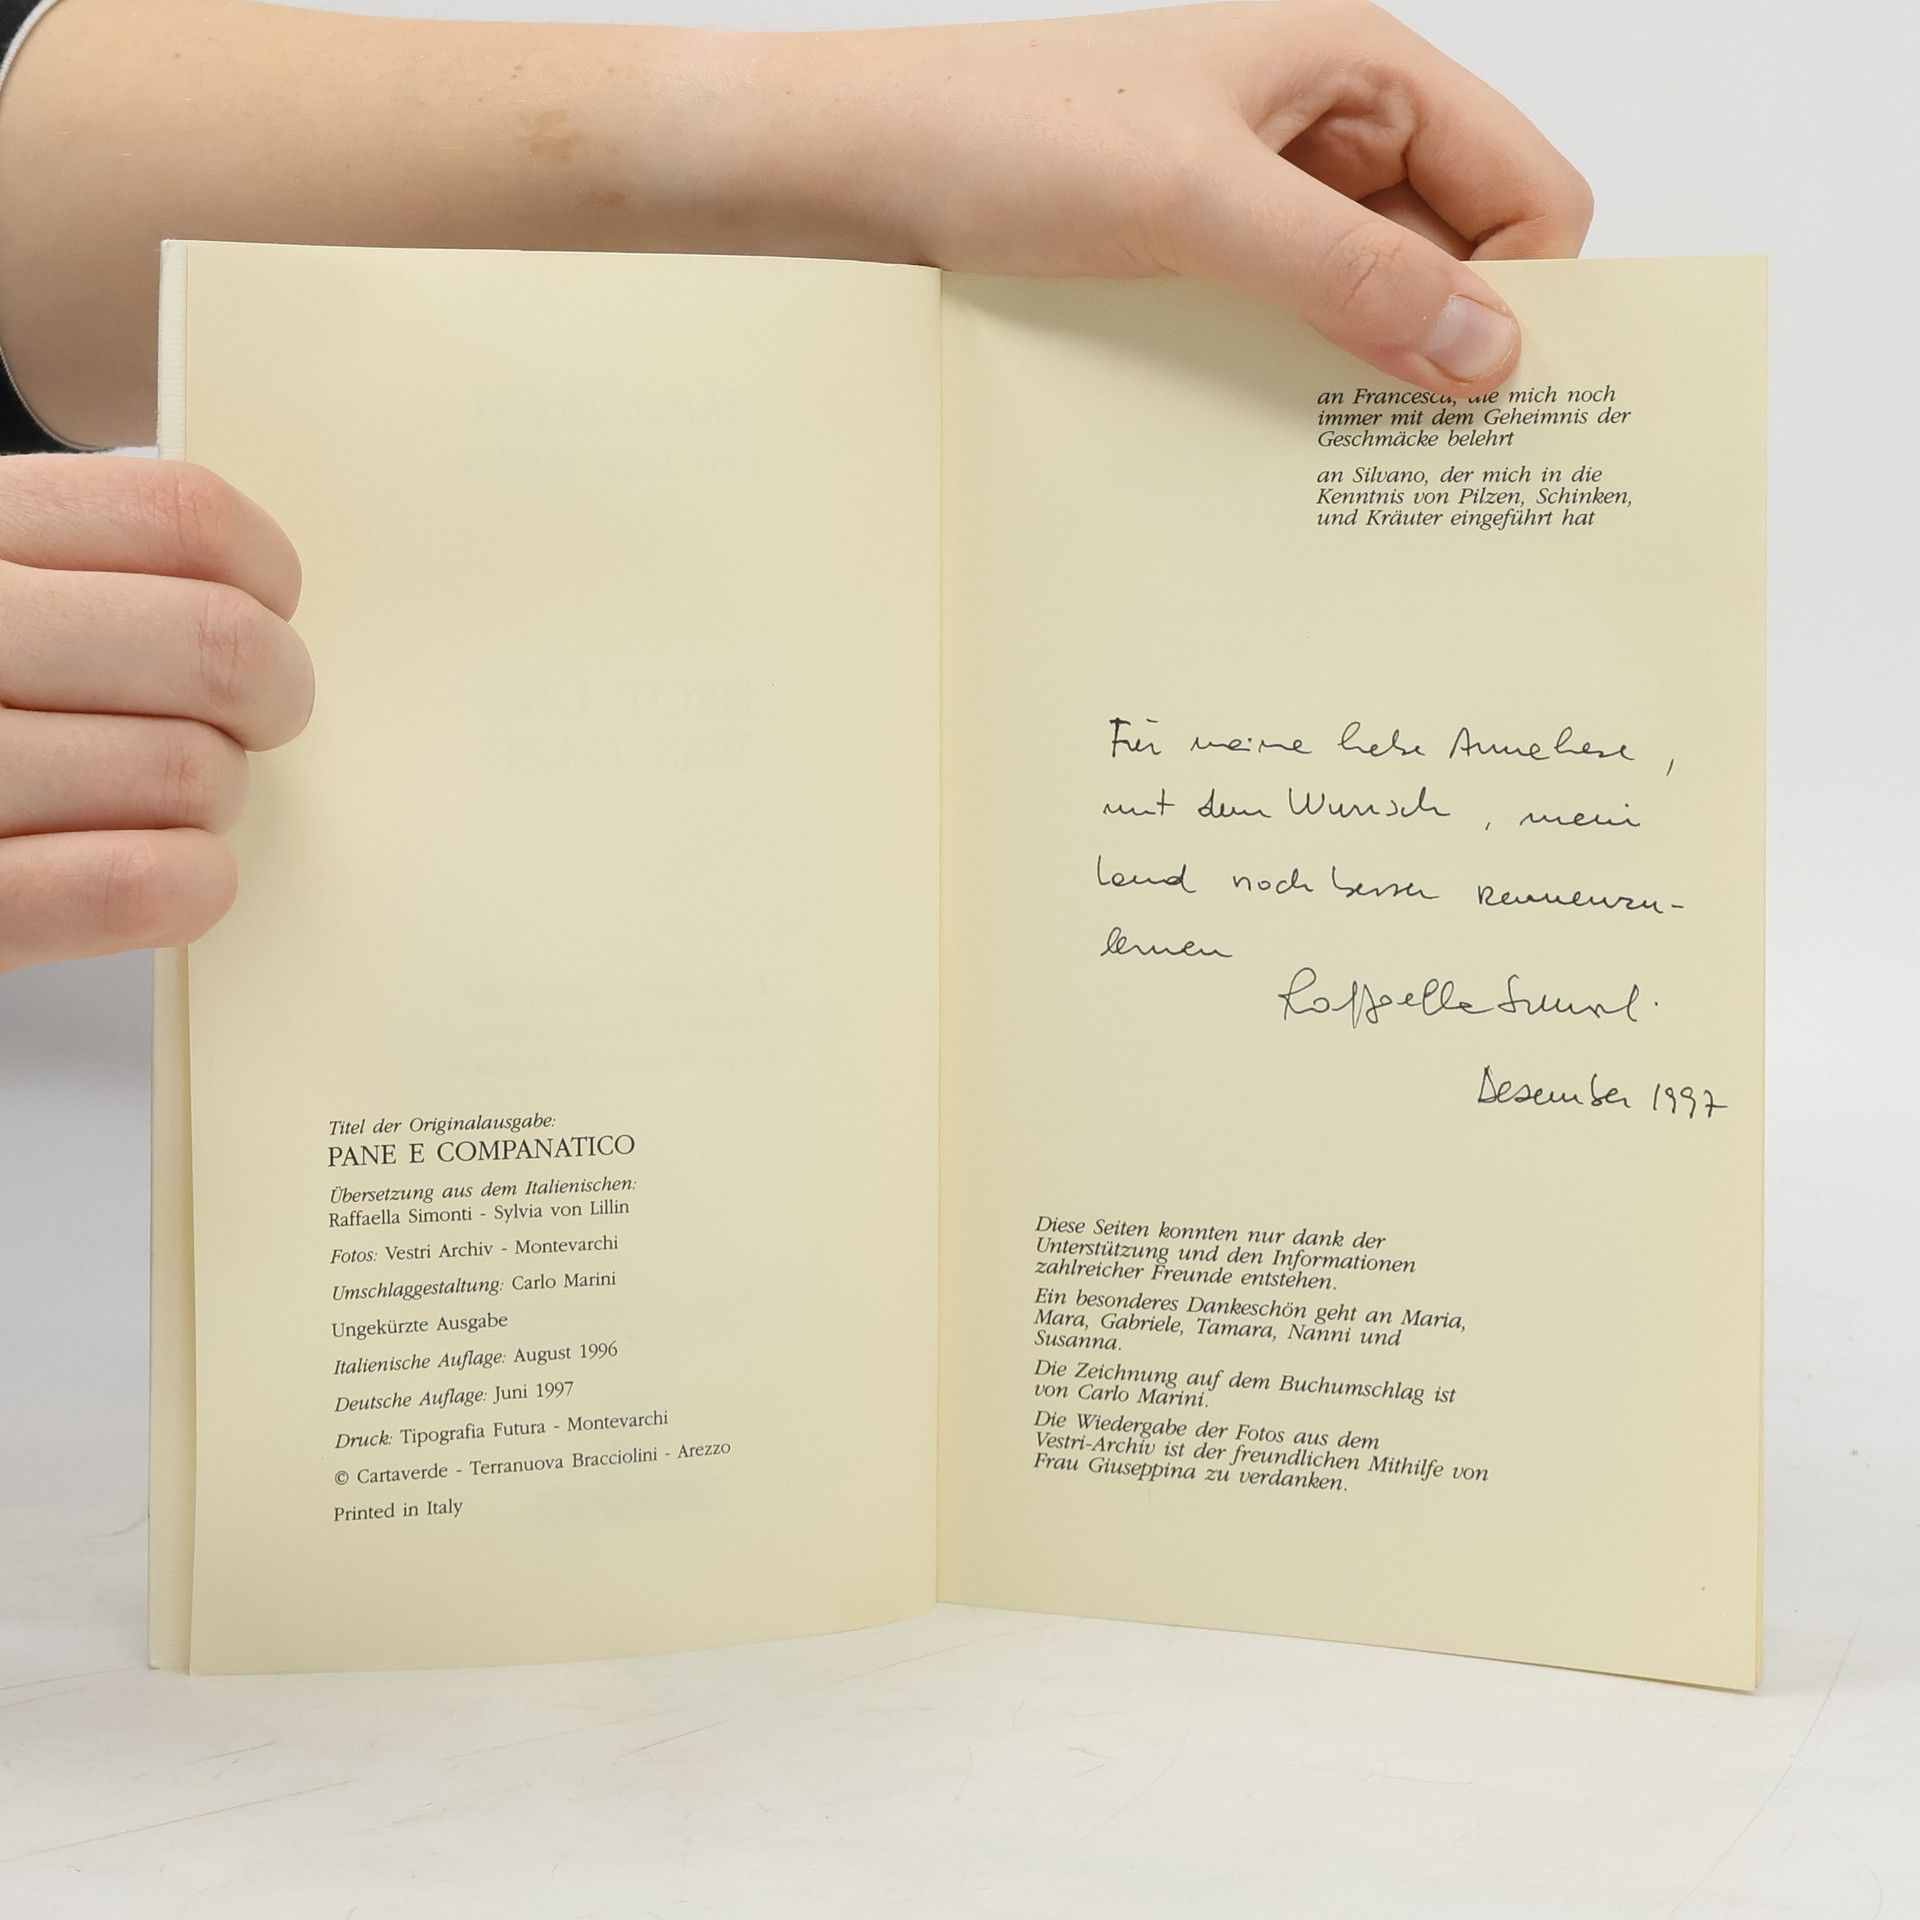 Titel der Originalausgabe:
PANE E COMPANATICO
Übersetzung aus dem Italienischen:
Raffaella Simonti - Sylvia von Lillin
Fotos: Vestri Archiv - Montevarchi
Umschlaggestaltung: Carlo Marini
Ungekürzte Ausgabe
Italienische Auflage: August 1996
Deutsche Auflage: Juni 1997
Druck: Tipografia Futura - Montevarchi
© Cartaverde - Terranuova Bracciolini - Arezzo
Printed in Italy
an Francesca, die mich noch
immer mit dem Geheimnis der
Geschmäcke belehrt
an Silvano, der mich in die
Kenntnis von Pilzen, Schinken,
und Kräuter eingeführt hat
Für meine liebe Anneliese,
mit dem Wunsch, mein
Land noch besser kennenzu-
lernen
Raffaella
Dezember 1997
Diese Seiten konnten nur dank der
Unterstützung und den Informationen
zahlreicher Freunde entstehen.
Ein besonderes Dankeschön geht an Maria,
Mara, Gabriele, Tamara, Nanni und
Susanna.
Die Zeichnung auf dem Buchumschlag ist
von Carlo Marini.
Die Wiedergabe der Fotos aus dem
Vestri-Archiv ist der freundlichen Mithilfe von
Frau Giuseppina zu verdanken.